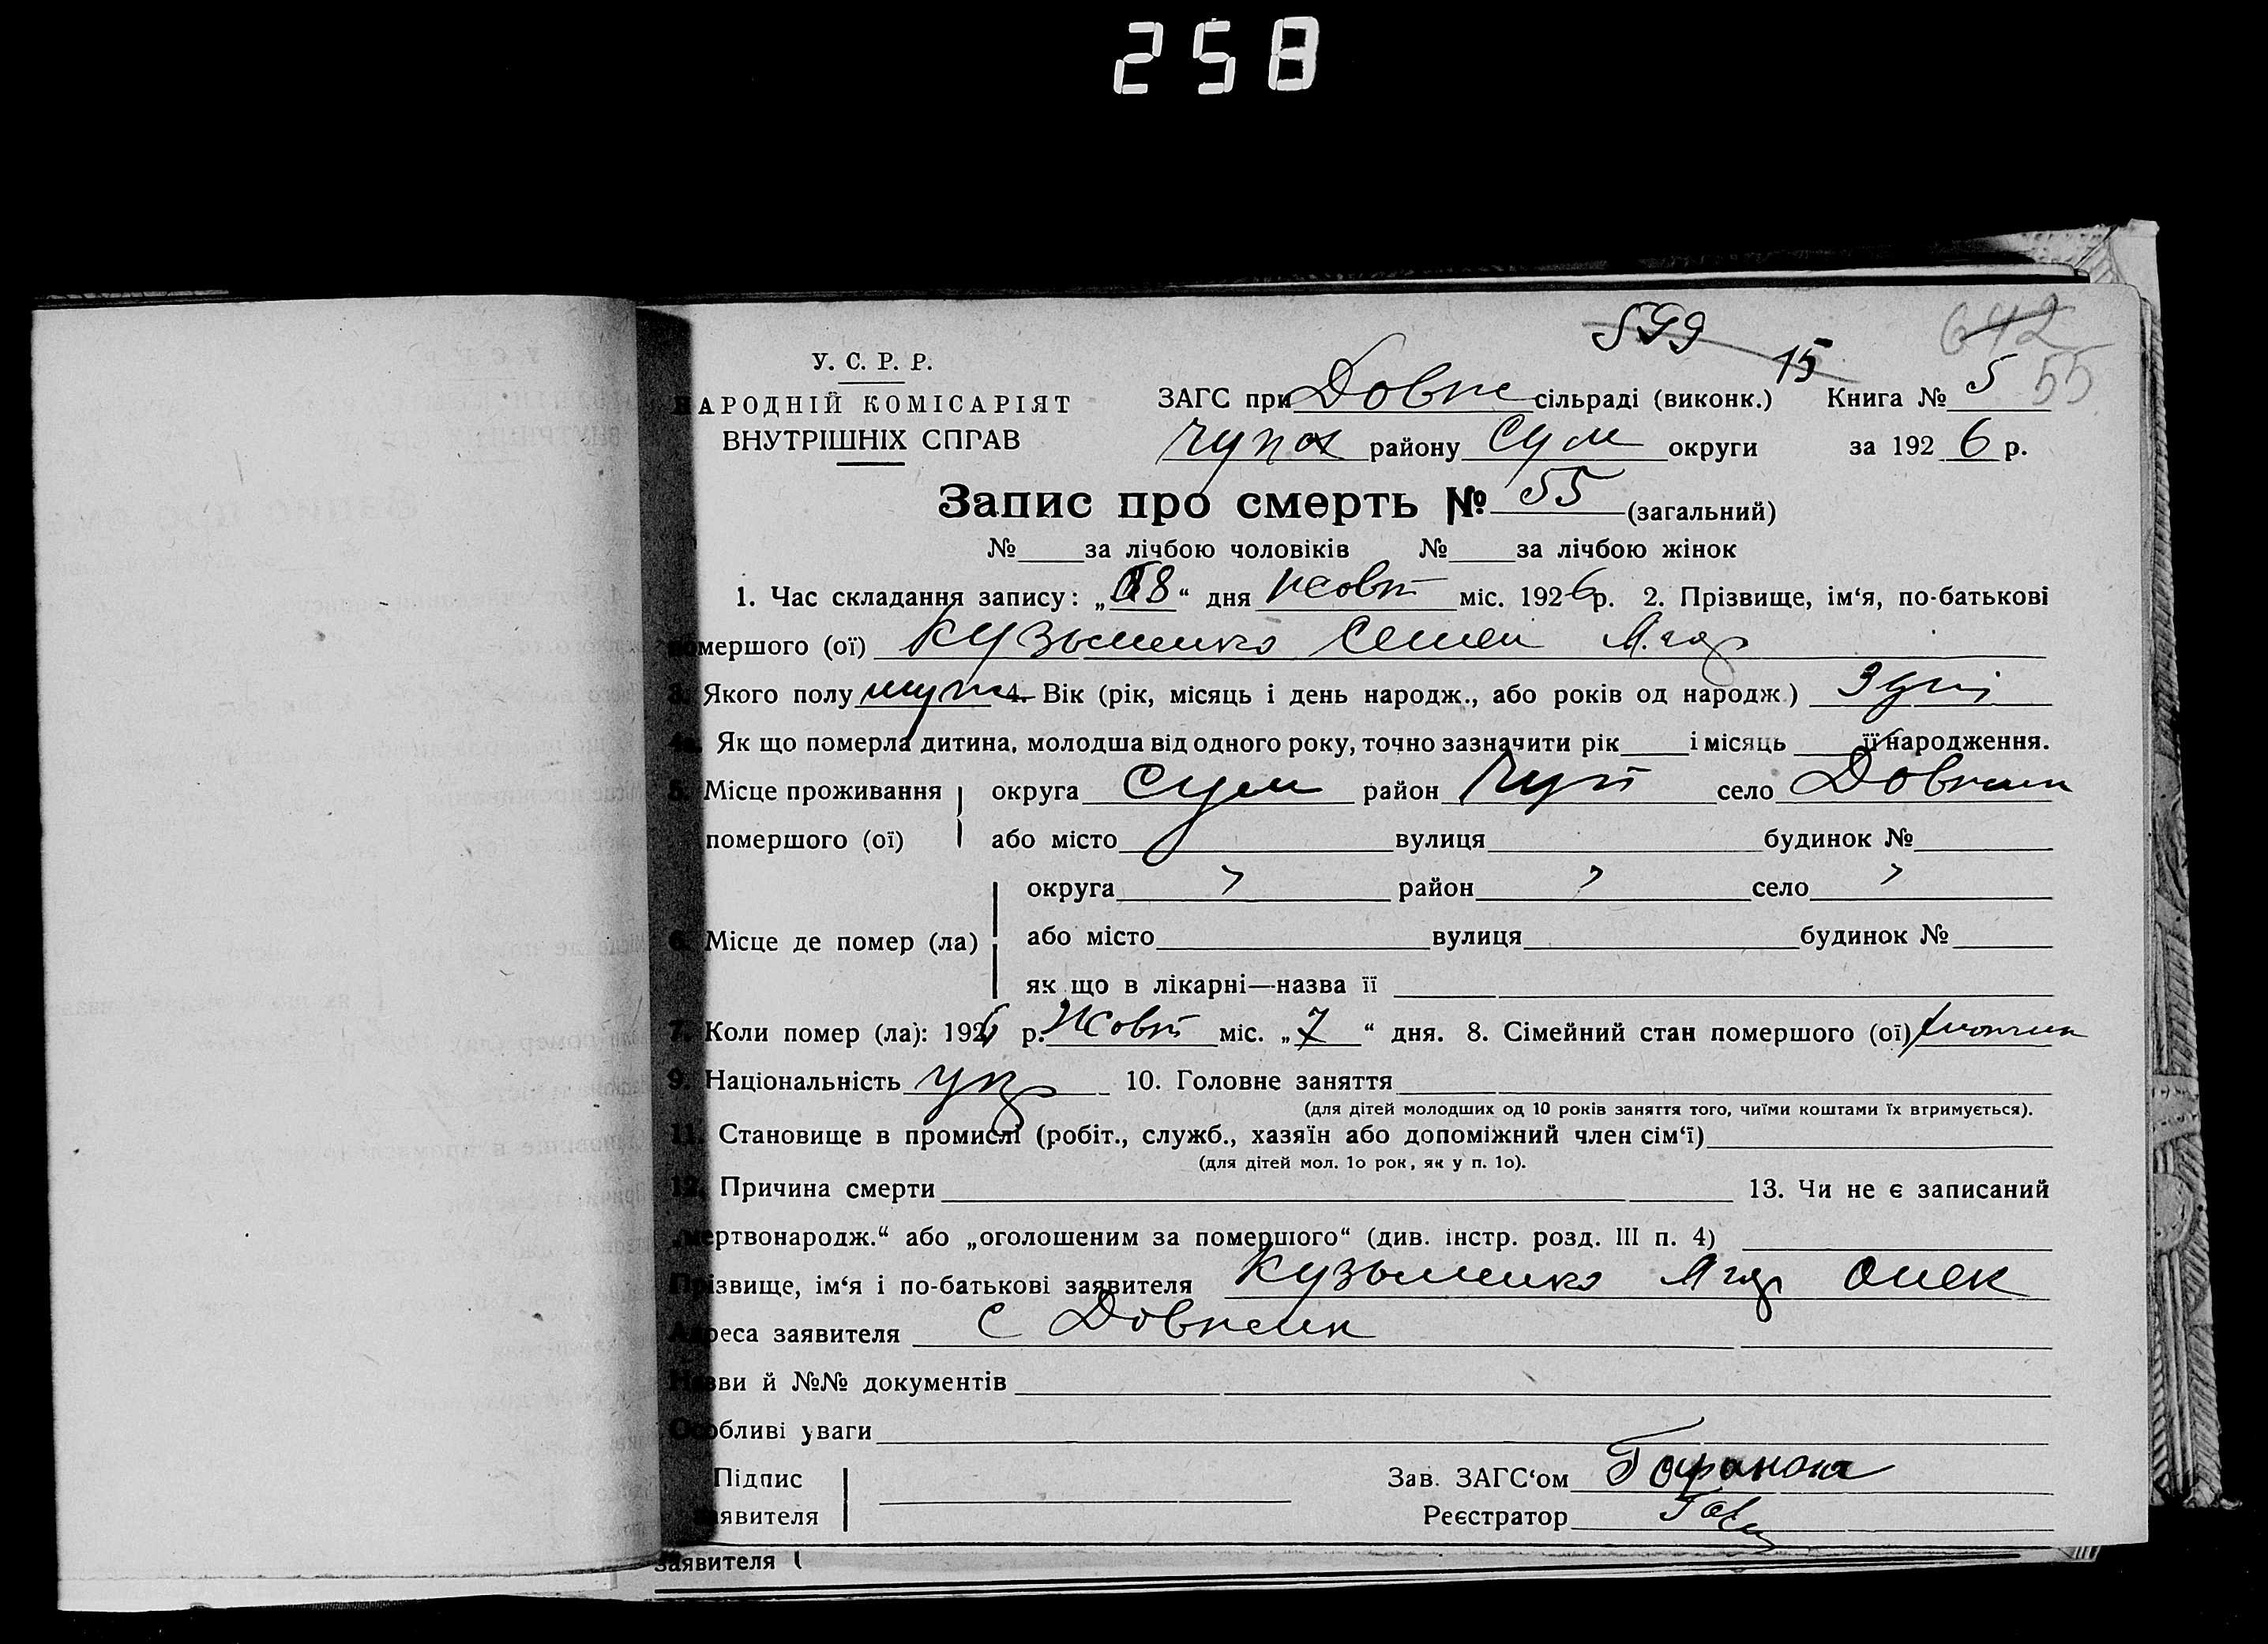 258
599 15 642
У. С. Р. Р.
НАРОДНІЙ КОМІСАРІЯТ
ВНУТРІШНІХ СПРАВ
ЗАГС при Довж сільраді (виконк.) Книга № 5 55
Чупах району Сум округи за 1926 р.
Запис про смерть № 55 (загальний)
№ за лічбою чоловіків № за лічбою жінок
1. Час складання запису: „18“ дня Жовт міс. 1926 р. 2. Прізвище, ім‘я, по-батькові
помершого (ої) Кузьменко Семен
3. Якого полу муж 4. Вік (рік, місяць і день народж., або років од народж.) 3 дні
4а. Як що померла дитина, молодша від одного року, точно зазначити рік і місяць її народження.
5. Місце проживання округа Сум район Чуп село Довжик
помершого (ої) або місто вулиця будинок №
округа район село
6. Місце де помер (ла) або місто вулиця будинок №
як що в лікарні—назва її
7. Коли помер (ла): 1926 р. Жовт міс. „7“ дня. 8. Сімейний стан помершого (ої)
9. Національність укр 10. Головне заняття
(для дітей молодших од 10 років заняття того, чиїми коштами їх втримується).
11. Становище в промислі (робіт., служб., хазяїн або допоміжний член сім‘ї)
(для дітей мол. 1о рок, як у п. 1о).
12. Причина смерти 13. Чи не є записаний
„мертвонародж.“ або „оголошеним за помершого“ (див. інстр. розд. III п. 4)
Прізвище, ім‘я і по-батькові заявителя Кузьменко
Адреса заявителя с Довжик
Назви й №№ документів
Особливі уваги
Підпис Зав. ЗАГС‘ом
заявителя Реєстратор
заявителя